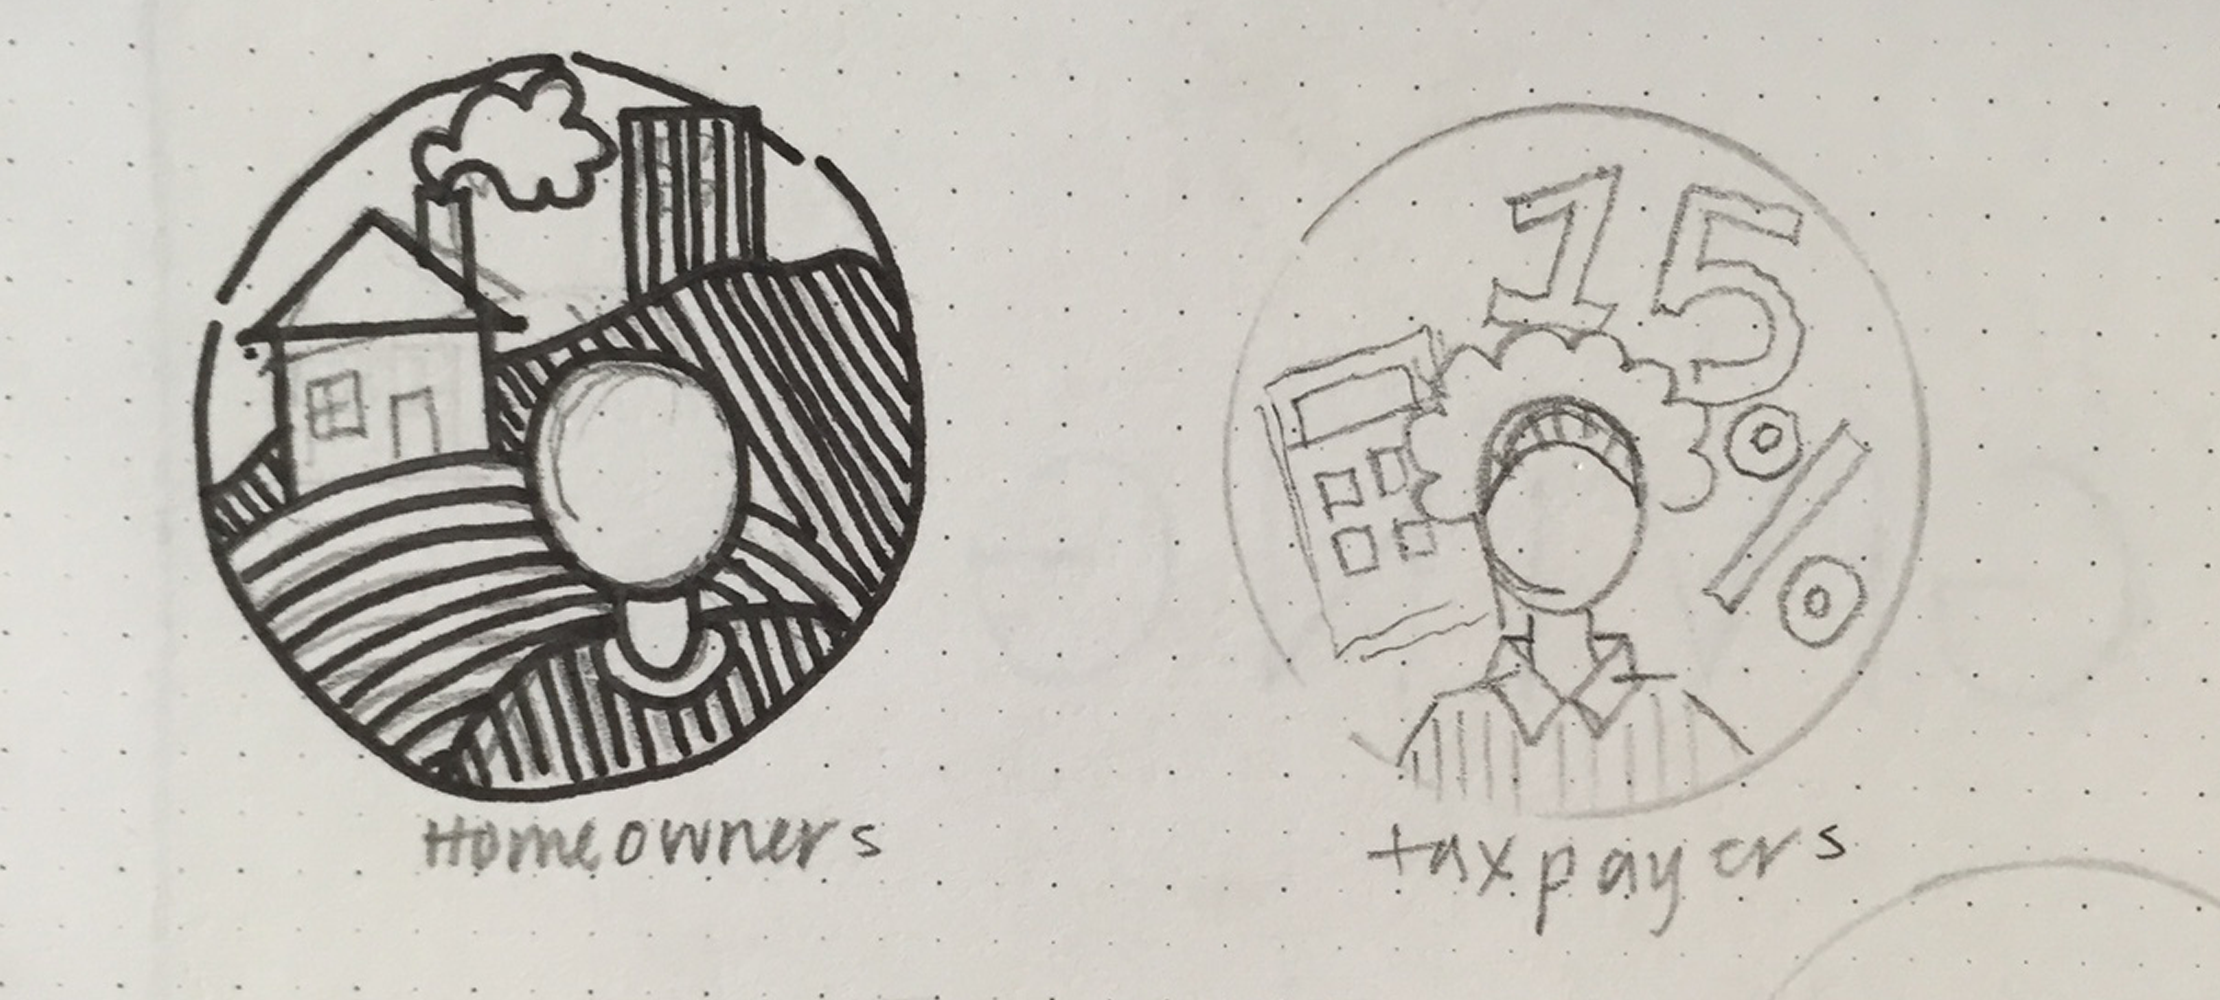 15
%
Homeowners
taxpayers